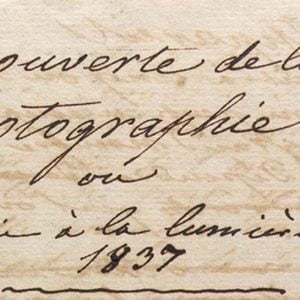 ouverte de la
otographie
ou
ie à la lumièr
1837